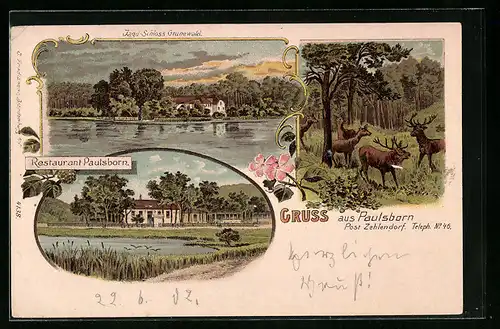 Jagd-Schloss Grunewald.
Restaurant Paulsborn.
GRUSS aus Paulsborn
Post Zehlendorf. Teleph. No. 46.
Herzlichen
Gruß!
22. 6. 02.
4138.